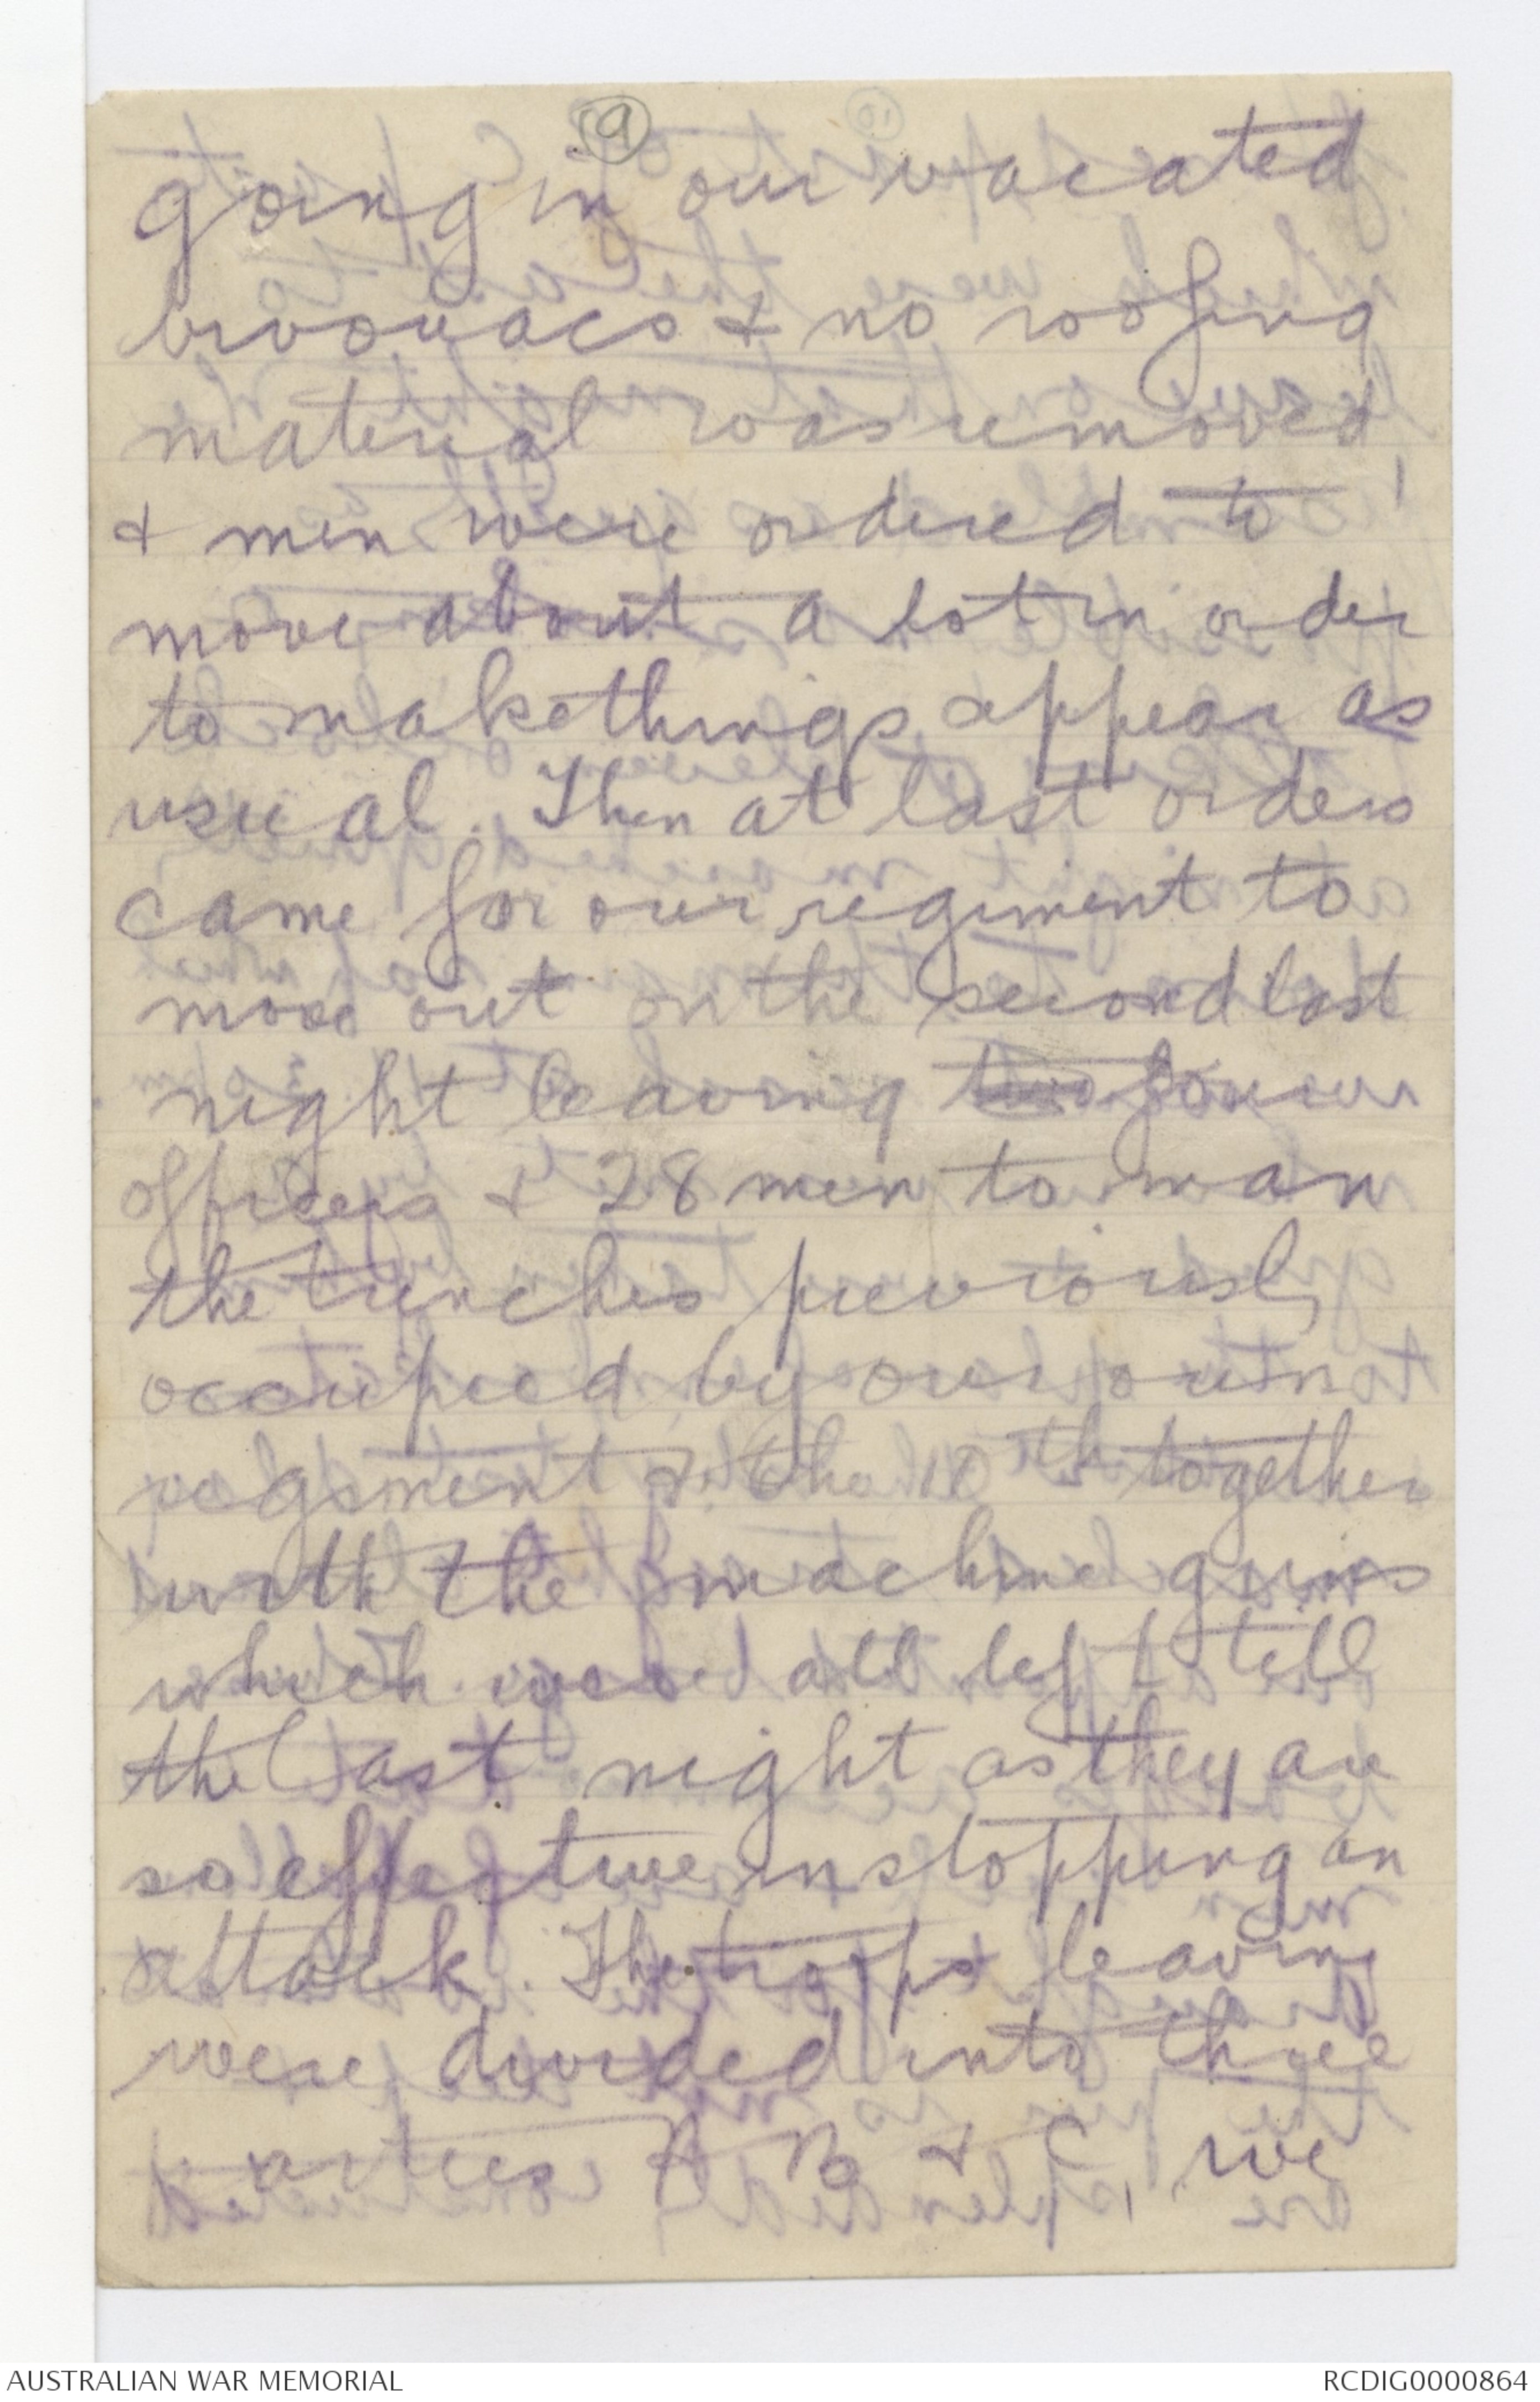 9
going in our vacated
bivouacs & no roofing
material was removed
& men were ordered to
move about a lot in order
to make things appear as
usual. Then at last orders
came for our regiment to
move out on the second last
night leaving two four
officers & 28 men to man
the trenches previously
occupied by our
regiment & the 10th together
with the machine guns
which were all left till
the last night as they are
so effective in stopping an
attack. The troops leaving
were divided into three
parties A B & C, we
AUSTRALIAN WAR MEMORIAL
RCDIG0000864